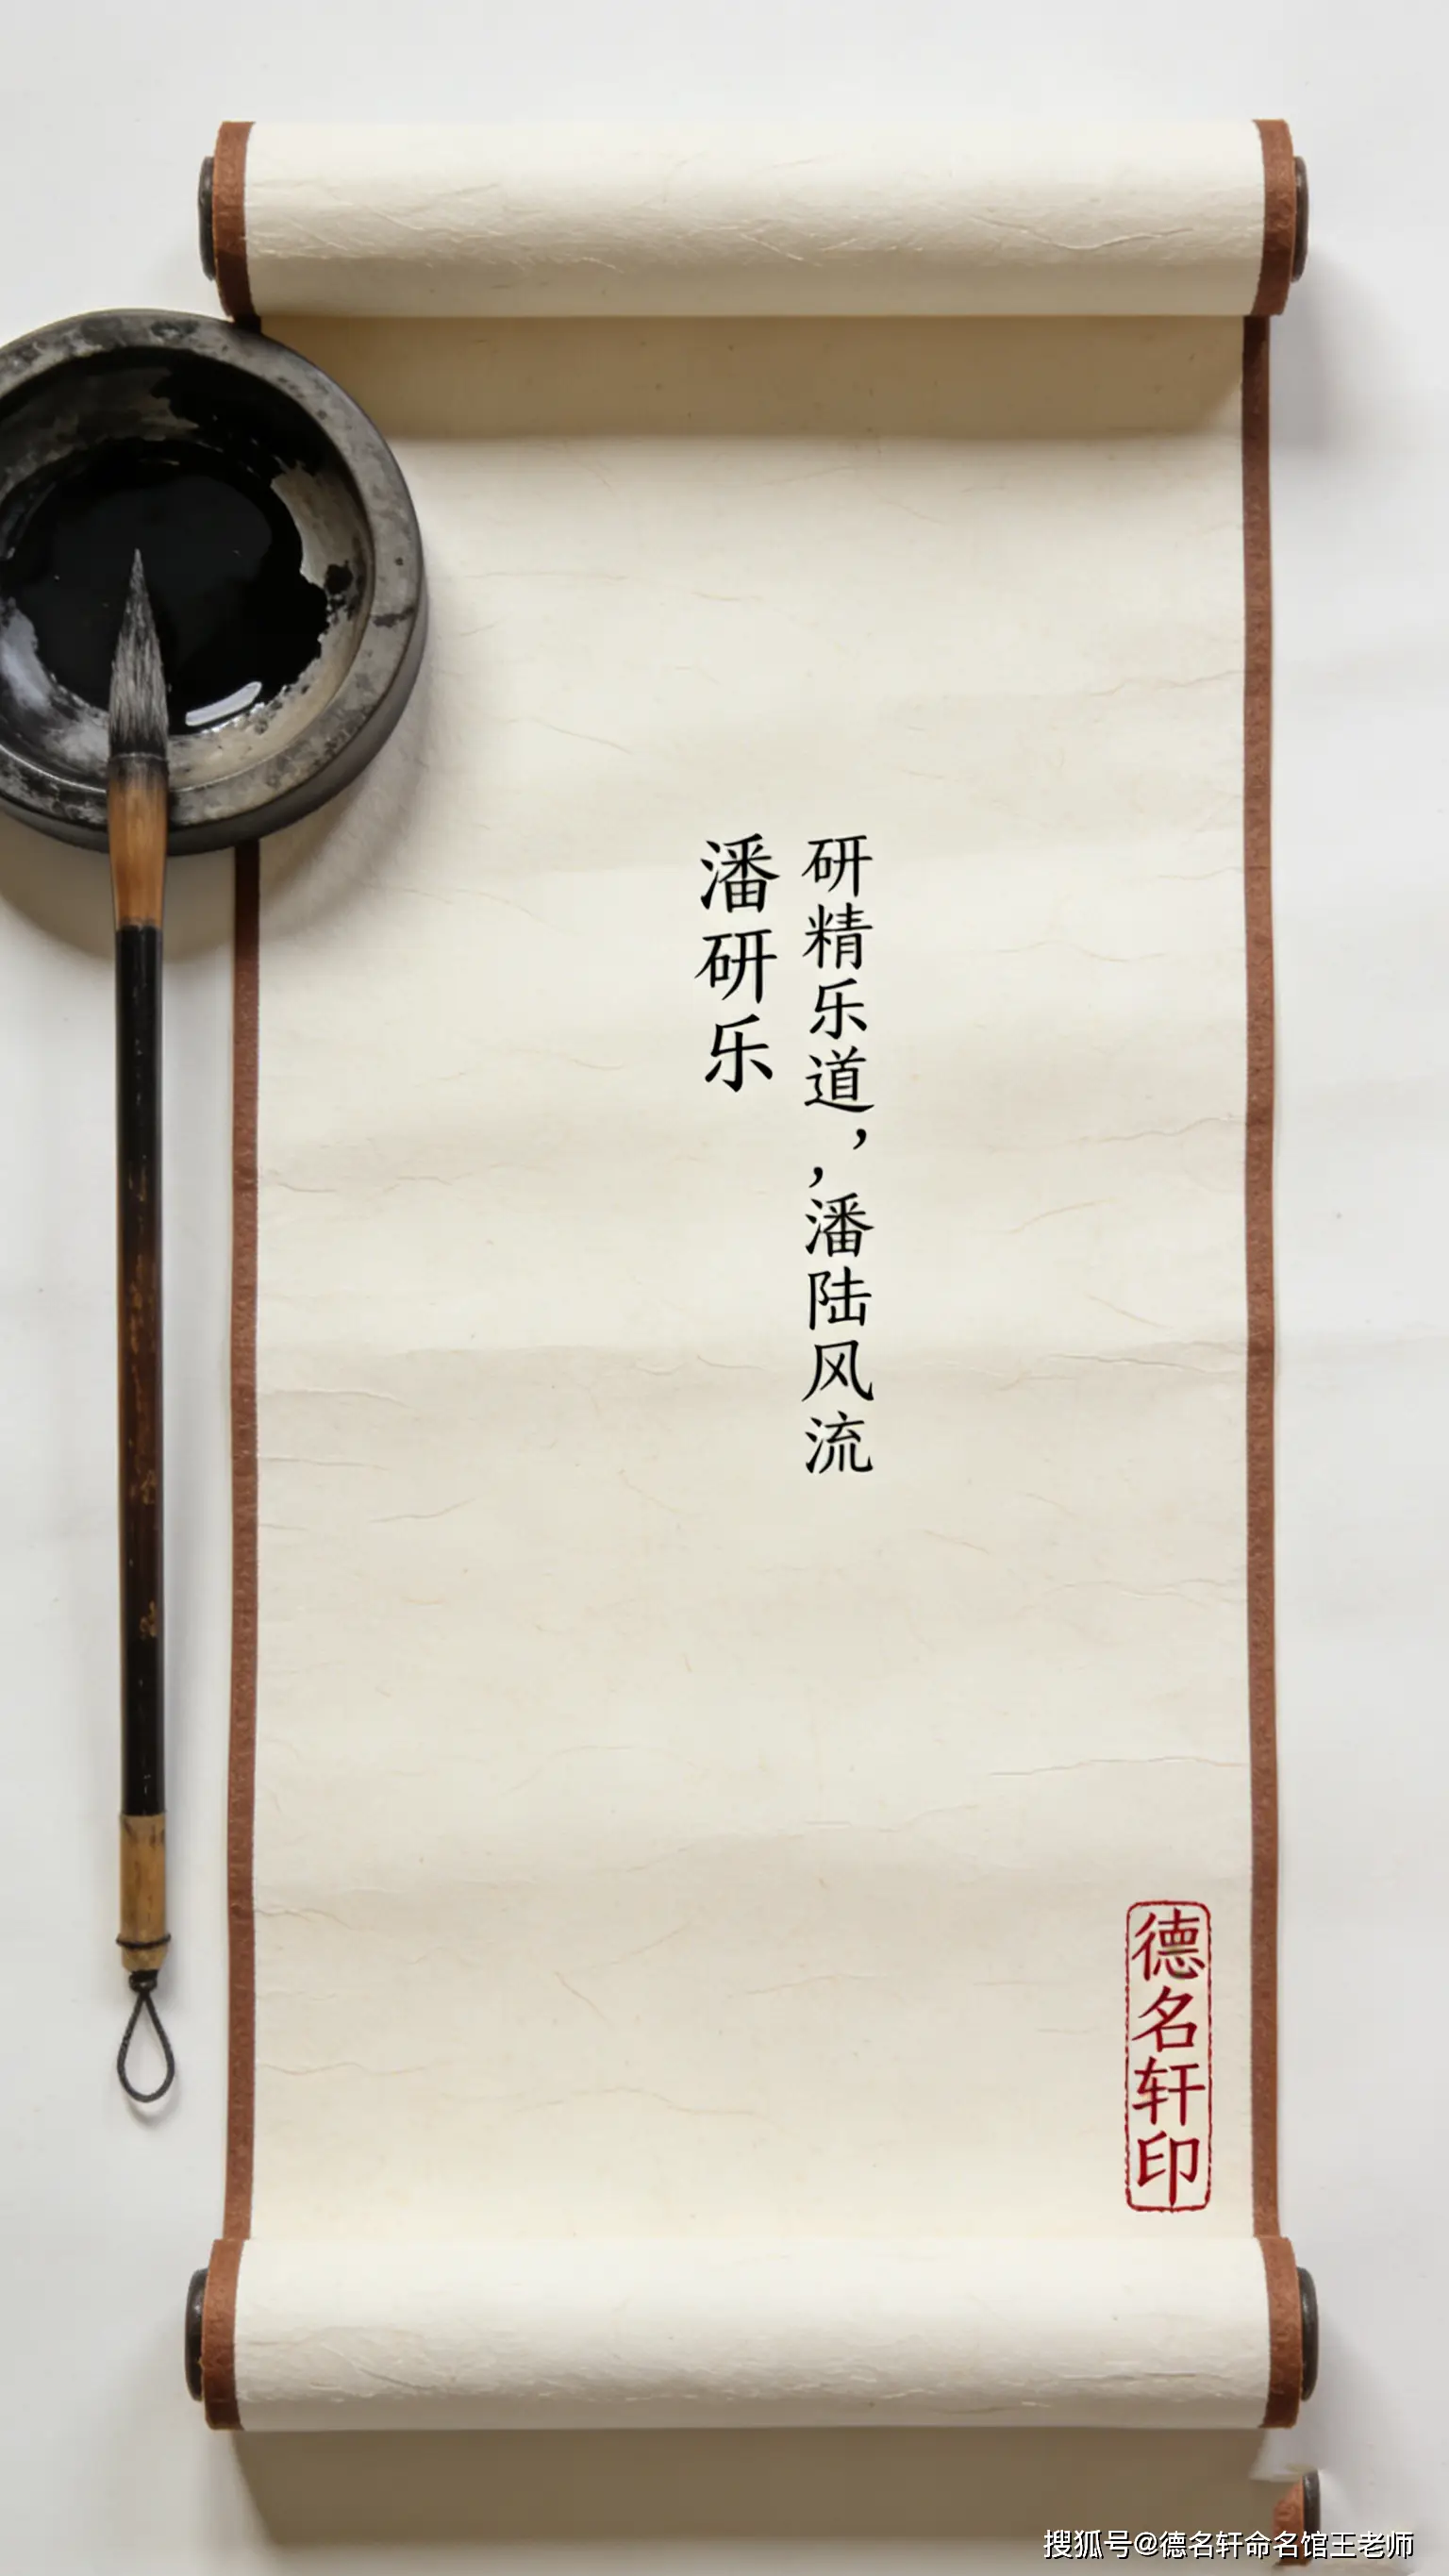 研精乐道，，潘陆风流
潘研乐
德名轩印
搜狐号@德名轩命名馆王老师